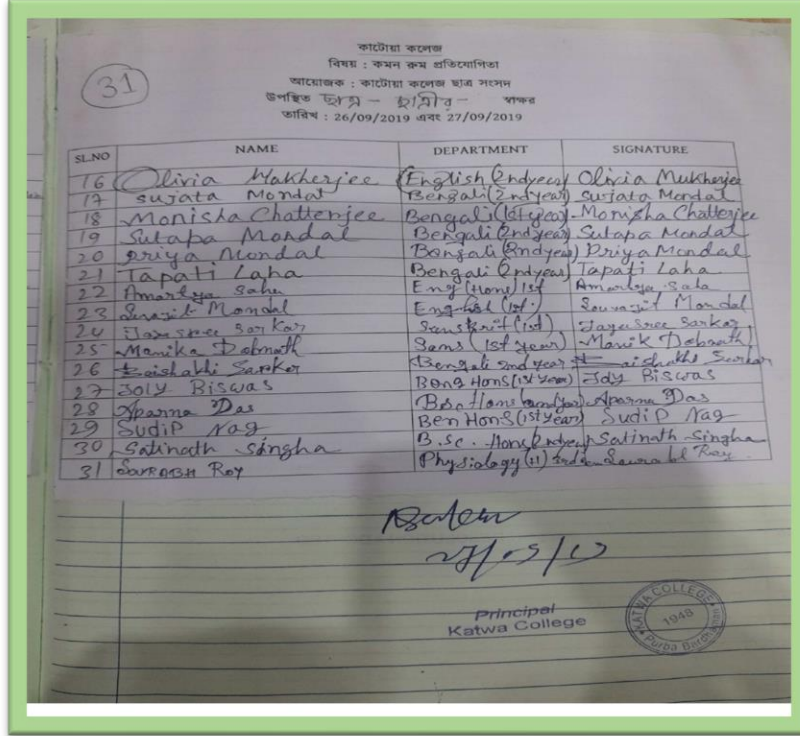 কাটোয়া কলেজ
বিষয় : কমন রুম প্রতিযোগিতা
31
আয়োজক : কাটোয়া কলেজ ছাত্র সংসদ
উপস্থিত ছাত্র - ছাত্রীর - স্বাক্ষর
তারিখ : 26/09/2019 এবং 27/09/2019
SL.NO NAME DEPARTMENT SIGNATURE
16 Olivia Makherjee English (2nd year) Olivia Mukherjee
17 Sujata Mondal Bengali (2nd year) Sujata Mondal
18 Monisha Chatterjee Bengali (1st year) Monisha Chatterjee
19 Sutapa Mondal Bengali (2nd year) Sutapa Mondal
20 Priya Mondal Bengali (2nd year) Priya Mondal
21 Tapati Laha Bengali (2nd year) Tapati Laha
22 Amartya Saha Eng (Hons) 1st Amartya Saha
23 Mondal English (1st.) Souvajit Mondal
24 Jayasree Sarkar Sanskrit (1st) Jayasree Sarkar
25 Manika Debnath Sans (1st year) Manik Debnath
26 Baishakhi Sarkar Bengali 2nd year Baishakhi Sarkar
27 Joly Biswas Beng Hons (1st year) Joly Biswas
28 Aparna Das Hons (2nd year) Aparna Das
29 Sudip Nag Ben Hons (1st year) Sudip Nag
30 Satinath Singha B.sc. Hons (2nd year) Satinath Singha
31 Sourabh Roy Physiology (H) Sourabh Roy
Principal
Katwa College
KATWA COLLEGE
1948
Purba Bardhaman